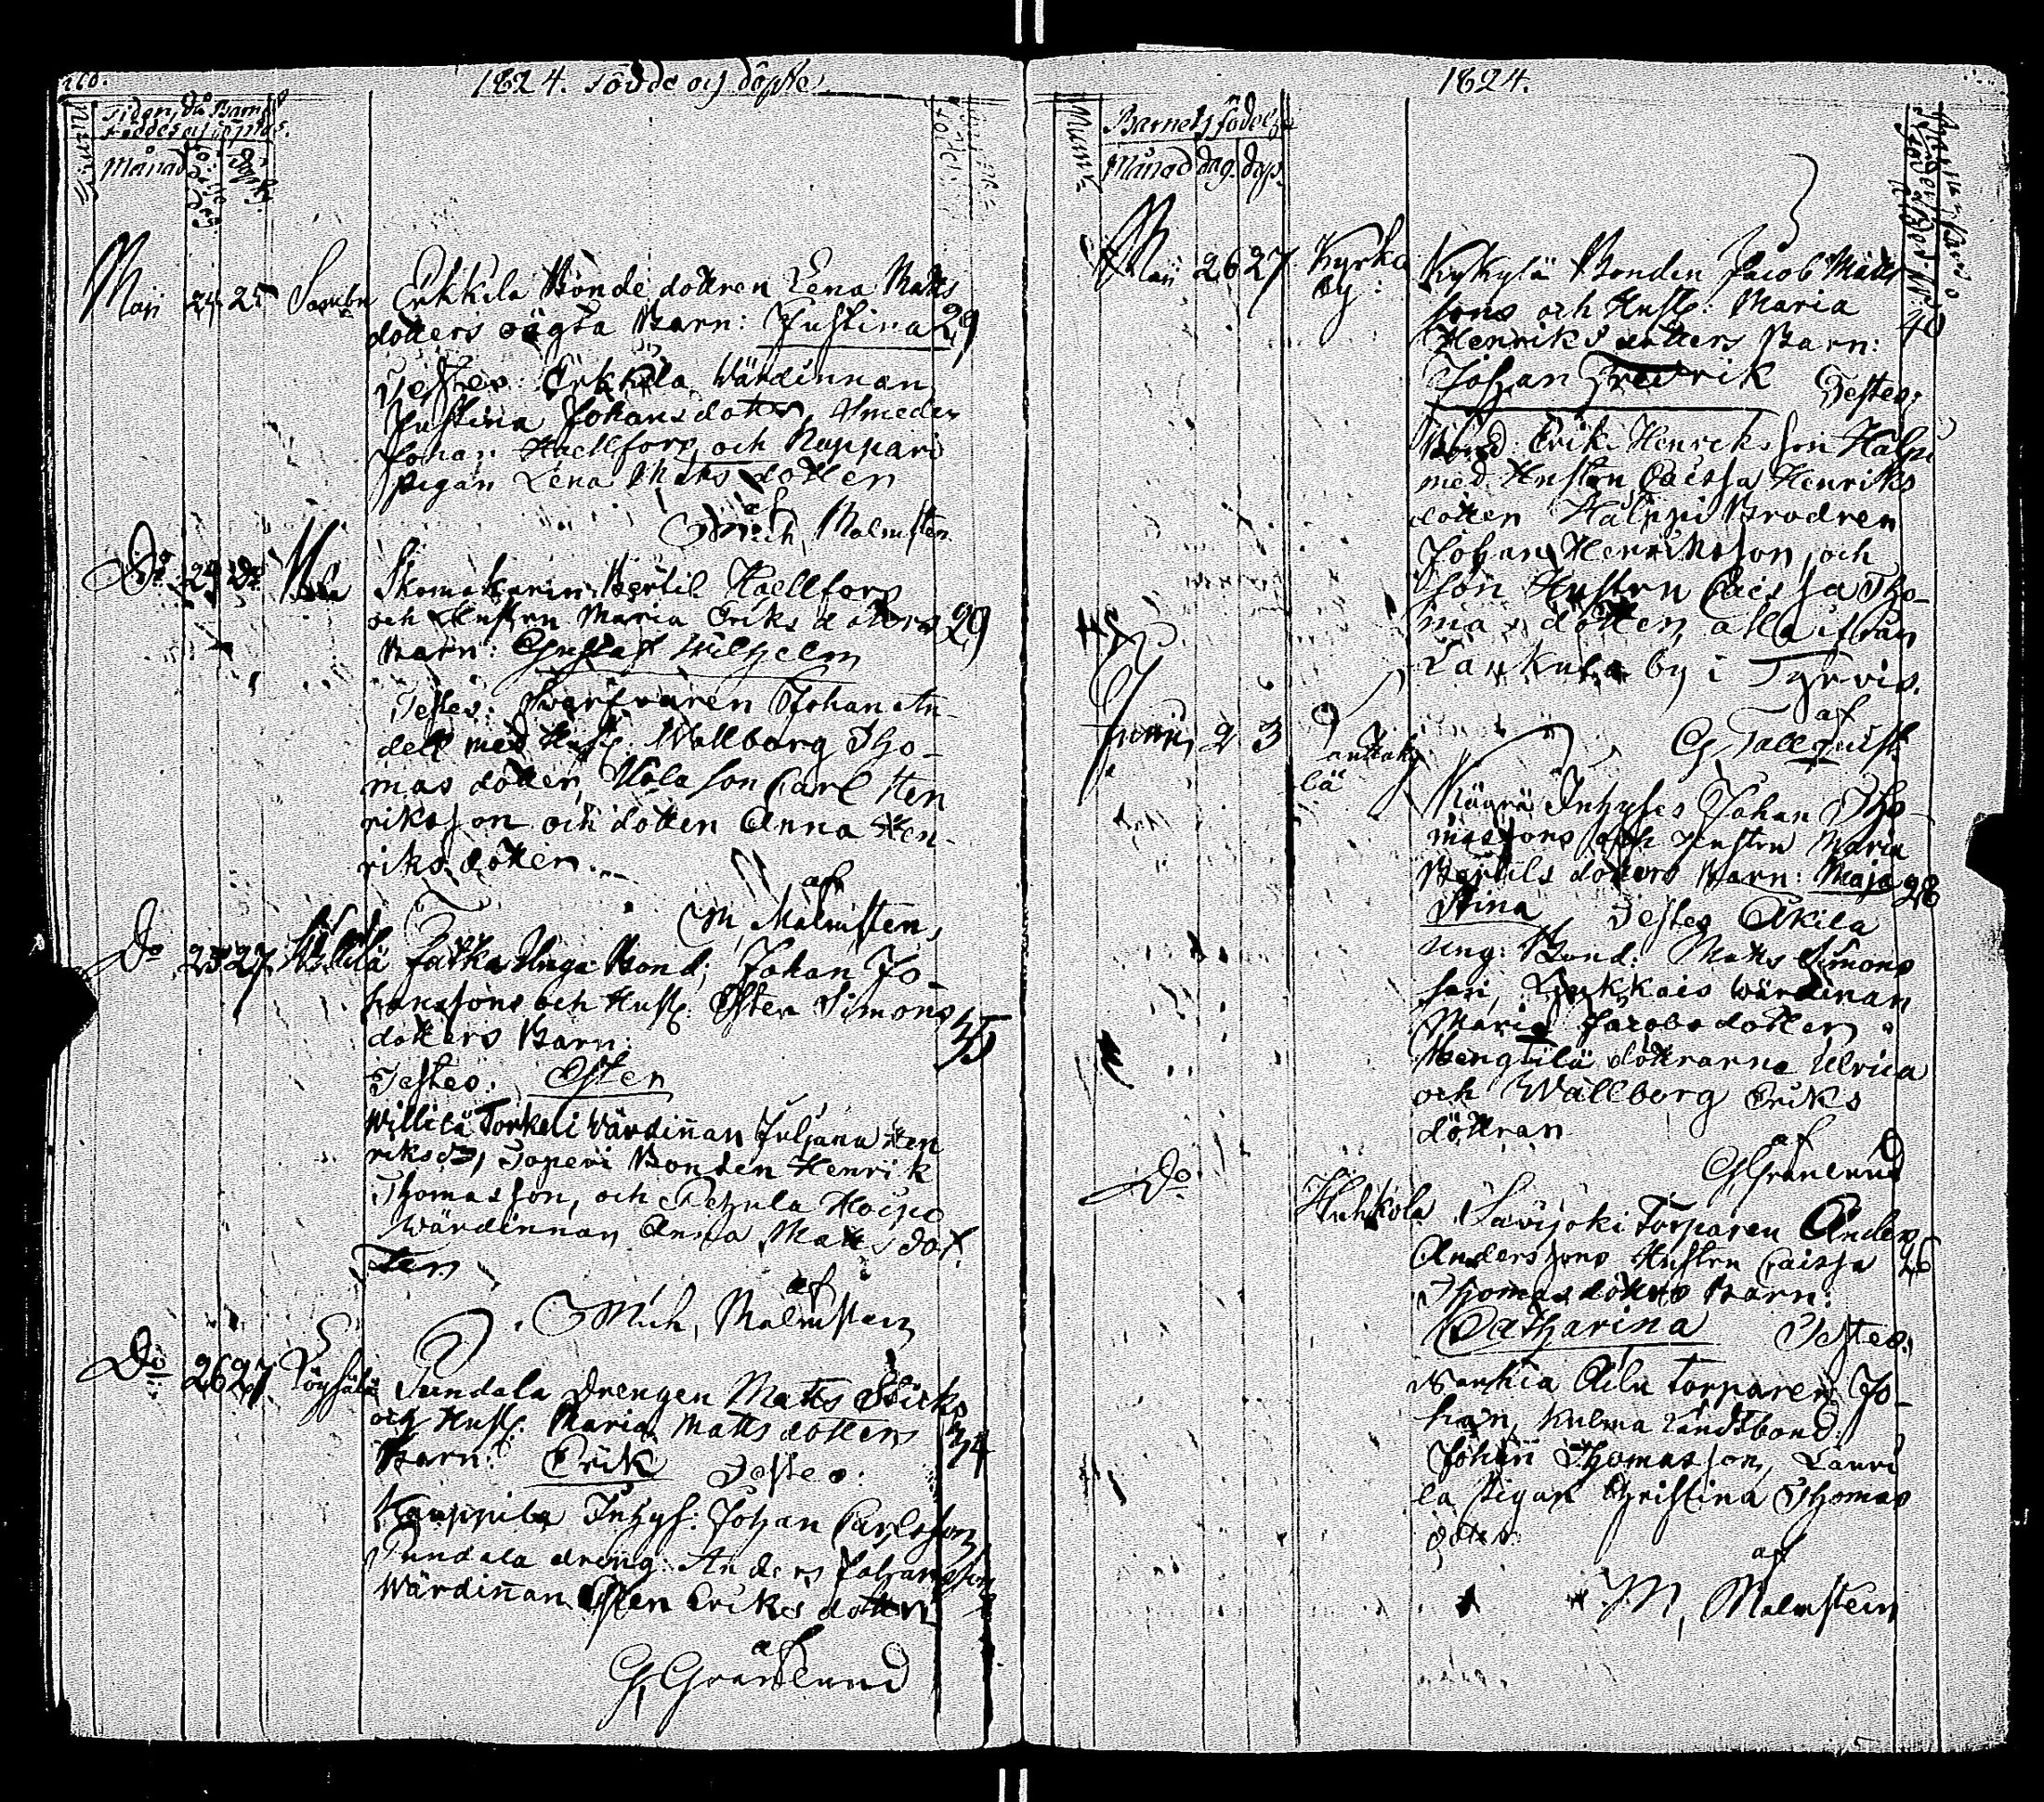 1824. födde och döpte.
Tiden, då Barn
föddes och döptes.
Månad
Maji 25 Erkkila Bonde dottren Lena Matts
dotters oägta Barn: Justina 29
Testes: Erkkila Wärdinnan
Justina Johansdotter, Smeden
Johan Haellfors och Nuppari
pigan Lena Matts dotter
af
Mich, Malmsten
Do 24 Do Skomakarin Bertil Haellfors
och Hustru Maria Eriks dotters 29
Barn: Gustaf Wilhelm
Testes: Swarfvaren Johan An-
dell med Hust: Wallborg Tho-
mas dotter, Ulola son Carl Hen
riksson och dotter Anna Hen-
riks dotter.
af
M, Malmsten,
Do 25 27 Jatka Unga Bond: Johan Jo
hanssons och Hust: Ester Simons
dotters Barn: 35
Testes: Ester
Willilä Torkeli Wärdinnan Juljana Hen
riksdr, Soperi Bonden Henrik
Thomasson, och Pehula Hoipo
Wärdinnan Anna Matts dot
ter
af
Mich, Malmsten
Do 26 27 Sundala Drengen Matts Ericks
och Hust: Maria Matts dotters 34
Barn: Erik Testes:
Kauppila Inhys: Johan Carlsson
Sundala dreng: Anders Johansson
Wärdinnan Ester Eriks dotter
af
G, Granlund
1824.
Numr
Barnets födelse
Månad dag. döps.
Maji 26 27 Kyrko
by: Kykylä Bonden Jacob Matts
sons och Hust: Maria
Henriks dotters Barn: 40
Johan Fredrik Testes:
Bond: Erik Henriksson Halpi
med Hustru Caissa Henriks
dotter Halppi Brodren
Johan Henriksson, och
son Hustru Caissa Tho-
mas dotter, alla ifrån
Laukula by i Tyrvis.
af
G, Tallquist
Junii 2 3 Inhyses Johan Tho-
massons och Hustru Maria
Bertils dotters Barn: Maja 28
Stina Testes Akila
ung: Bond: Matts Simons
son, Wärdinan
Maria Jacobs dotter
Bengtilä döttrarna Ulrica
och Wallborg Eriks
döttrar
af
G, Granlund
Do Huhkola Savijoki Torparen Anders
Anderssons Hustru Caissa 26
Thomasdotters Barn:
Catharina Testes:
Torparen Jo-
han, Kulma Landtbond:
Johan Thomasson, Lauri
la pigan Christina Thomas
doter.
af
M, Malmstein